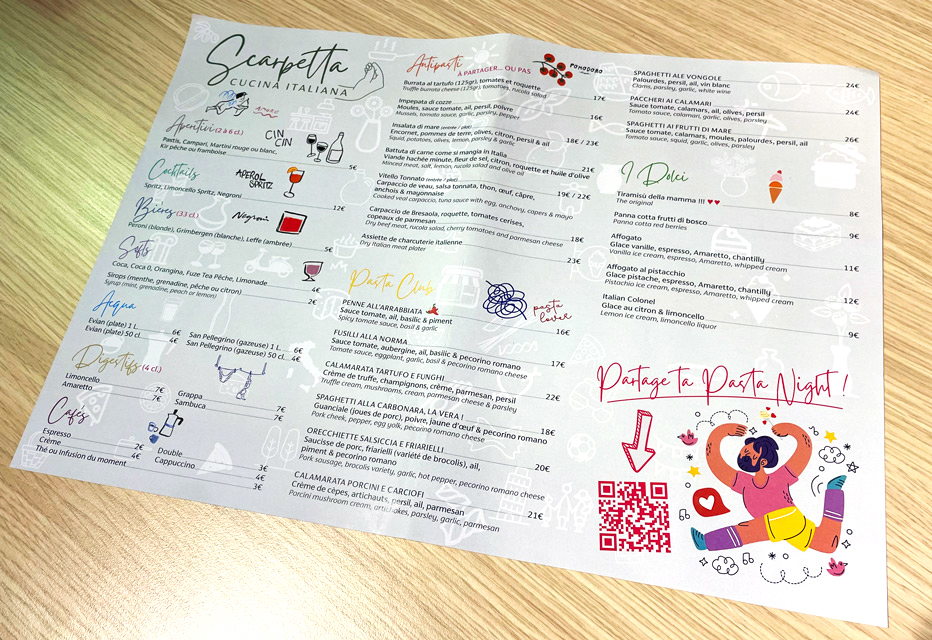 Scarpetta
CUCINA ITALIANA
Aperitivi (2 à 6 cl.)
CIN CIN
Pastis, Campari, Martini rouge ou blanc,
Kir pêche ou framboise
5€
Cocktails
APEROL SPRITZ
Spritz, Limoncello Spritz, Negroni
12€
Bières (33 cl.)
Negroni
Peroni (blonde), Grimbergen (blanche), Leffe (ambrée)
5€
Softs
Coca, Coca 0, Orangina, Fuze Tea Pêche, Limonade
4€
Sirops (menthe, grenadine, pêche ou citron)
Syrup (mint, grenadine, peach or lemon)
2€
Acqua
Evian (plate) 1 L. 6€
Evian (plate) 50 cl. 4€
San Pellegrino (gazeuse) 1 L. 6€
San Pellegrino (gazeuse) 50 cl. 4€
Digestifs (4 cl.)
Limoncello 7€
Amaretto 7€
Grappa 7€
Sambuca 7€
Cafés
Espresso 2€
Crème 4€
Thé ou Infusion du moment 4€
Double 3€
Cappuccino 4€
3€
Antipasti
À PARTAGER... OU PAS
POMODORO
Burrata al tartufo (125gr), tomates et roquette
Truffle burrata cheese (125gr), tomatoes, rucola salad
17€
Impepata di cozze
Moules, sauce tomate, ail, persil, poivre
Mussels, tomato sauce, garlic, parsley, pepper
16€
Insalata di mare (entrée / plat)
Encornet, pommes de terre, olives, citron, persil & ail
Squid, potatoes, olives, lemon, parsley & garlic
18€ / 23€
Battuta di carne come si mangia in Italia
Viande hachée minute, fleur de sel, citron, roquette et huile d'olive
Minced meat, salt, lemon, rucola salad and olive oil
21€
Vitello Tonnato (entrée / plat)
Carpaccio de veau, salsa tonnata, thon, œuf, câpre,
anchois & mayonnaise
Cooked veal carpaccio, tuna sauce with egg, anchovy, capers & mayo
19€ / 22€
Carpaccio de Bresaola, roquette, tomates cerises,
copeaux de parmesan
Dry beef meat, rucola salad, cherry tomatoes and parmesan cheese
18€
Assiette de charcuterie italienne
Dry Italian meat plater
23€
Pasta Club
pasta lover
PENNE ALL'ARRABBIATA
Sauce tomate, ail, basilic & piment
Spicy tomato sauce, basil & garlic
16€
FUSILLI ALLA NORMA
Sauce tomate, aubergine, ail, basilic & pecorino romano
Tomato sauce, eggplant, garlic, basil & pecorino romano cheese
17€
CALAMARATA TARTUFO E FUNGHI
Crème de truffe, champignons, crème, parmesan, persil
Truffle cream, mushrooms, cream, parmesan cheese & parsley
22€
SPAGHETTI ALLA CARBONARA, LA VERA !
Guanciale (joues de porc), poivre, jaune d'œuf & pecorino romano
Pork cheek, pepper, egg yolk, pecorino romano cheese
18€
ORECCHIETTE SALSICCIA E FRIARIELLI
Saucisse de porc, friarielli (variété de brocolis), ail,
piment & pecorino romano
Pork sausage, brocolis variety, garlic, hot pepper, pecorino romano cheese
20€
CALAMARATA PORCINI E CARCIOFI
Crème de cèpes, artichauts, persil, ail, parmesan
Porcini mushroom cream, artichokes, parsley, garlic, parmesan
21€
SPAGHETTI ALE VONGOLE
Palourdes, persil, ail, vin blanc
Clams, parsley, garlic, white wine
24€
PACCHERI AI CALAMARI
Sauce tomate, calamars, ail, olives, persil
Tomato sauce, calamari, garlic, olives, parsley
24€
SPAGHETTI AI FRUTTI DI MARE
Sauce tomate, calamars, moules, palourdes, persil, ail
Tomato sauce, squid, garlic, olives, parsley
26€
I Dolci
Tiramisù della mamma !!! ♥♥
The original
8€
Panna cotta frutti di bosco
Panna cotta red berries
9€
Affogato
Glace vanille, espresso, Amaretto, chantilly
Vanilla ice cream, espresso, Amaretto, whipped cream
11€
Affogato al pistacchio
Glace pistache, espresso, Amaretto, chantilly
Pistachio ice cream, espresso, Amaretto, whipped cream
12€
Italian Colonel
Glace au citron & limoncello
Lemon ice cream, limoncello liquor
9€
Partage ta Pasta Night !